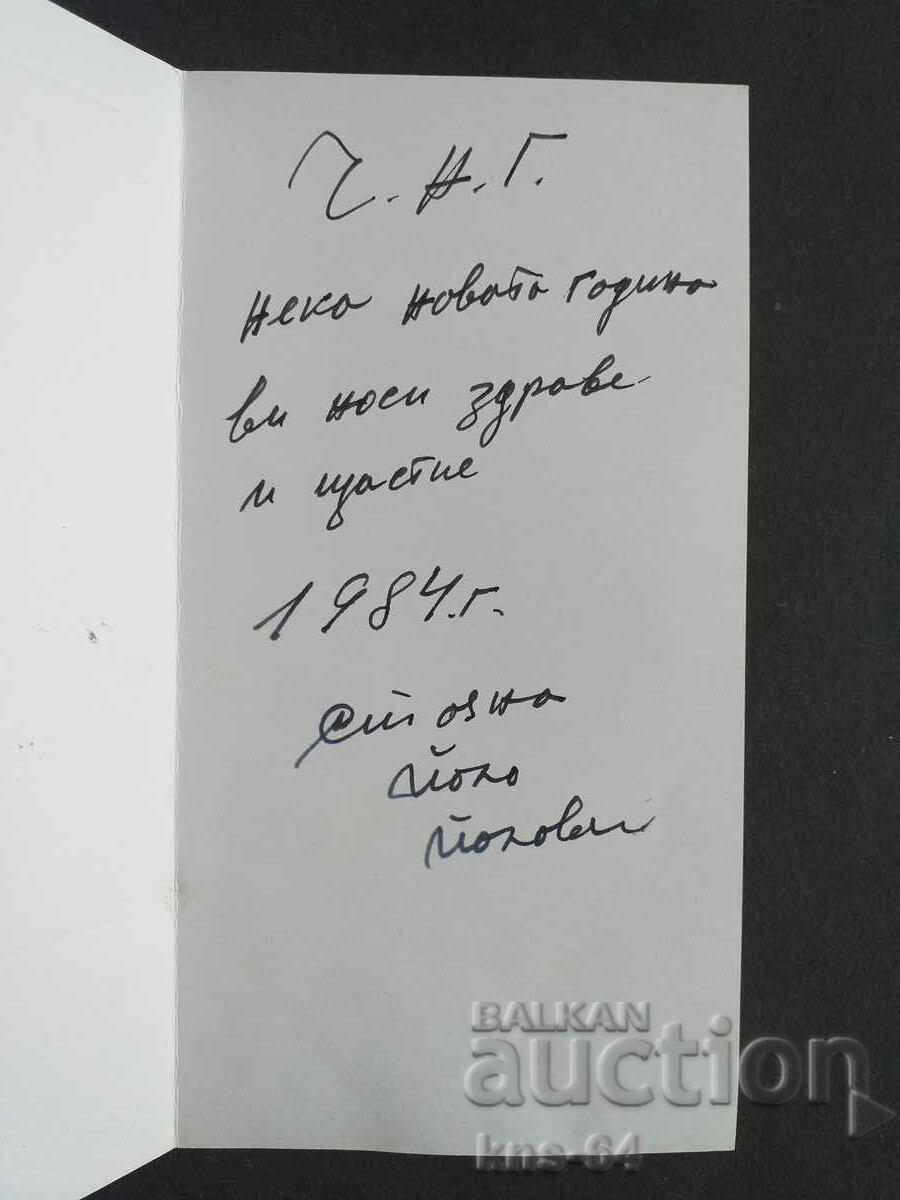 Ч.Н.Г.
Нека новата година
ви носи здраве
и щастие
1984.г.
Стояна
Йоно
Йонови
BALKAN
auction
kns-64